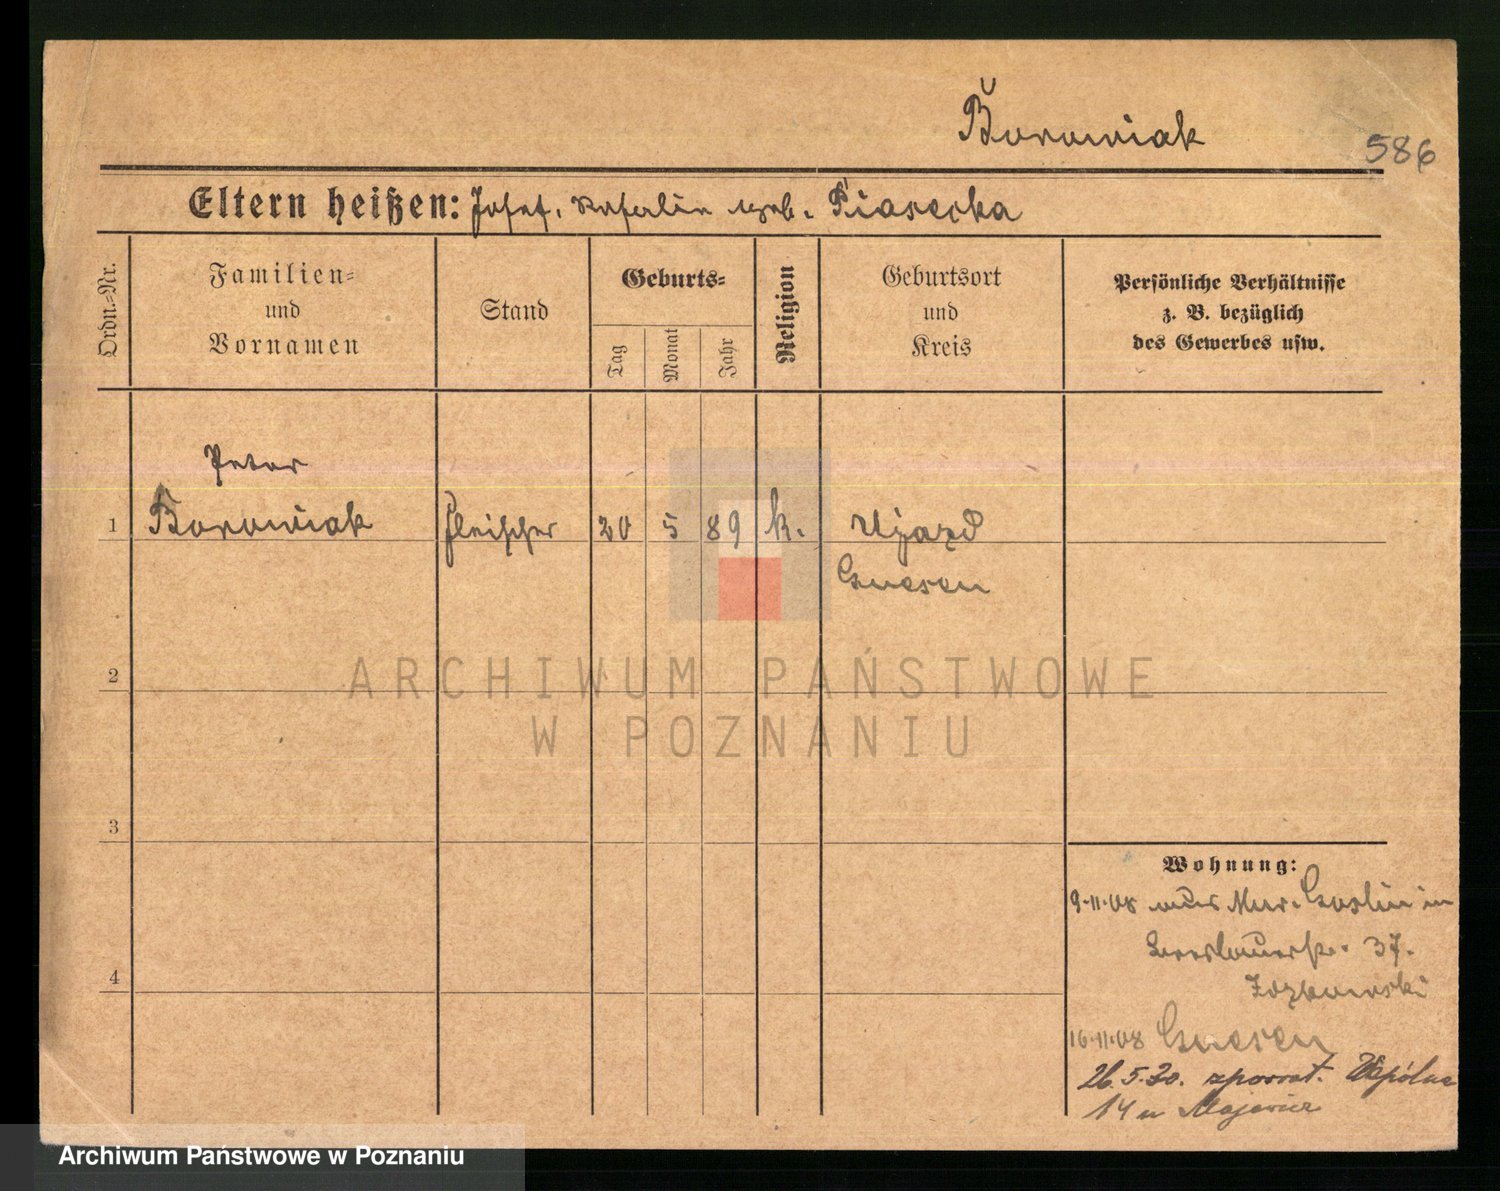 Boroniak
586
Eltern heißen: Josef, Rosalie geb. Piasecka
Ordn.=Nr.
Familien=
und
Vornamen
Stand
Geburts=
Tag
Monat
Jahr
Religion
Geburtsort
und
Kreis
Persönliche Verhältnisse
z. B. bezüglich
des Gewerbes usw.
Peter
1 Boroniak Fleischer 20 5 89 k. Ujazd
Gnesen
2
3
4
ARCHIWUM PAŃSTWOWE
W POZNANIU
Wohnung:
9.11.08 Mur. Goslin in
37.
16.11.08 Gnesen
26.5.30. z powrot. Wspólna
14 u
Archiwum Państwowe w Poznaniu